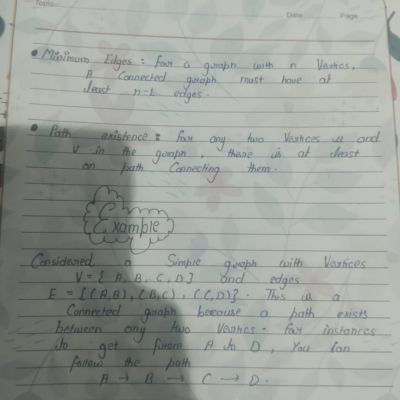 Topic
Date
Page
• Minimum Edges : For a graph with n Vertices,
A Connected graph must have at
least n-1 edges.
• Path existence : For any two Vertices u and
V in the graph, there is at least
on path Connecting them.
Example
Considered a Simple graph with Vertices
V = { A, B, C, D } and edges
E = {(A,B), (B,C), (C,D)}. This is a
Connected graph because a path exists
between any two Vertices. For instances
to get from A to D, You Can
follow the path
A → B → C → D.